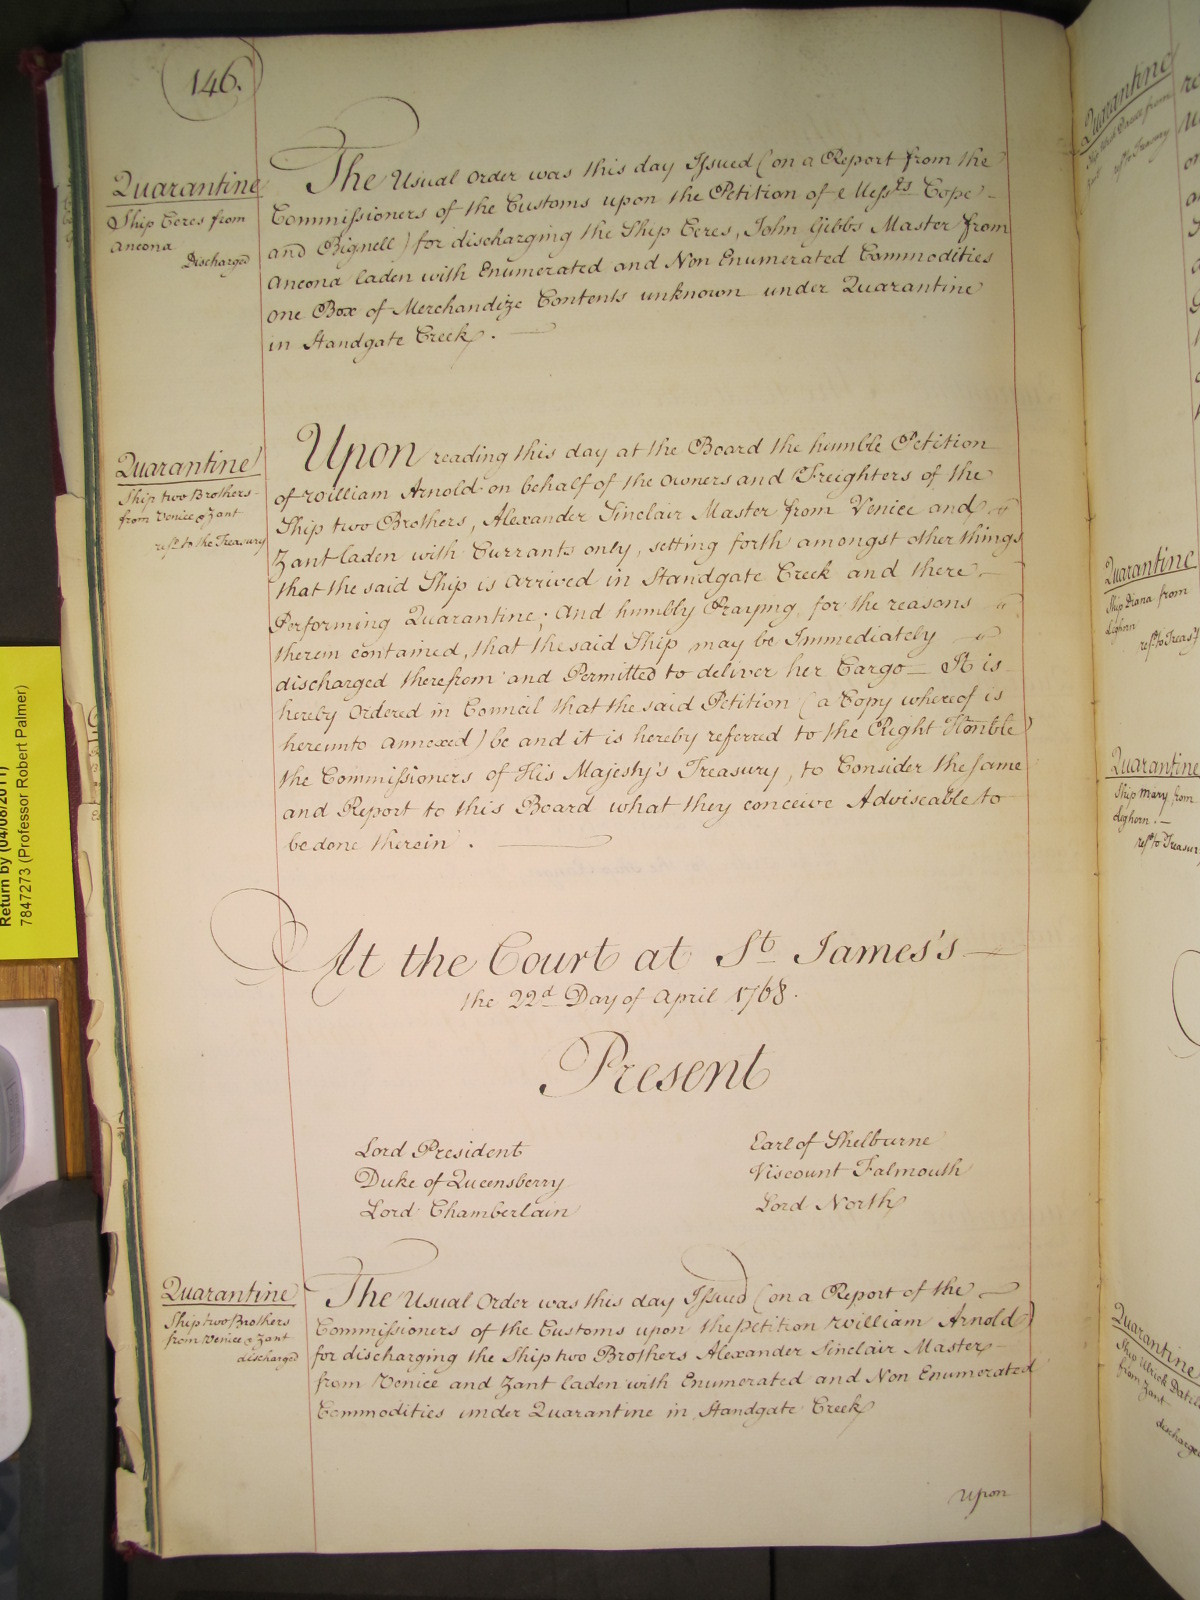 146.
Quarantine
Ship Ceres from
Ancona
Discharged
The Usual Order was this day Issued (on a Report from the
Commissioners of the Customs upon the Petition of Mess.rs Cope
and Bignell) for discharging the Ship Ceres, John Gibbs Master from
Ancona laden with Enumerated and Non Enumerated Commodities
one Box of Merchandize Contents unknown under Quarantine
in Standgate Creek.
Quarantine
Ship two Brothers
from Venice & Zant
ref.d to the Treasury
Upon reading this day at the Board the humble Petition
of William Arnold on behalf of the Owners and Freighters of the
Ship two Brothers, Alexander Sinclair Master from Venice and
Zant laden with Currants only, setting forth amongst other things
that the said Ship is arrived in Standgate Creek and there
Performing Quarantine; And humbly Praying, for the reasons
therein contained, that the said Ship may be Immediately
discharged therefrom and Permitted to deliver her Cargo — It is
hereby Ordered in Council that the said Petition (a Copy whereof is
hereunto annexed) be and it is hereby referred to the Right Honble
the Commissioners of His Majesty's Treasury, to Consider the same
and Report to this Board what they conceive Adviseable to
be done therein.
At the Court at St James's
the 22d Day of April 1768.
Present
Lord President
Duke of Queensberry
Lord Chamberlain
Earl of Shelburne
Viscount Falmouth
Lord North
Quarantine
Ship two Brothers
from Venice & Zant
discharged
The Usual Order was this day Issued (on a Report of the
Commissioners of the Customs upon the Petition William Arnold)
for discharging the Ship two Brothers Alexander Sinclair Master
from Venice and Zant laden with Enumerated and Non Enumerated
Commodities under Quarantine in Standgate Creek
Upon
Quarantine
Quarantine
Ship Diana from
Leghorn
ref.d to Treas.y
Quarantine
Ship Mary from
Leghorn.
ref.d to Treasury
Quarantine
from Zant
discharged
Return by (04/08/2011)
7847273 (Professor Robert Palmer)